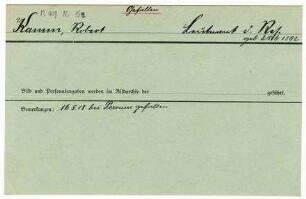 Gefallen
Kamm, Robert Leutnant d. Res.
geb. 1892
Bild und Personalangaben werden im Bildarchiv der geführt.
Bemerkungen: 16.5.18 bei gefallen